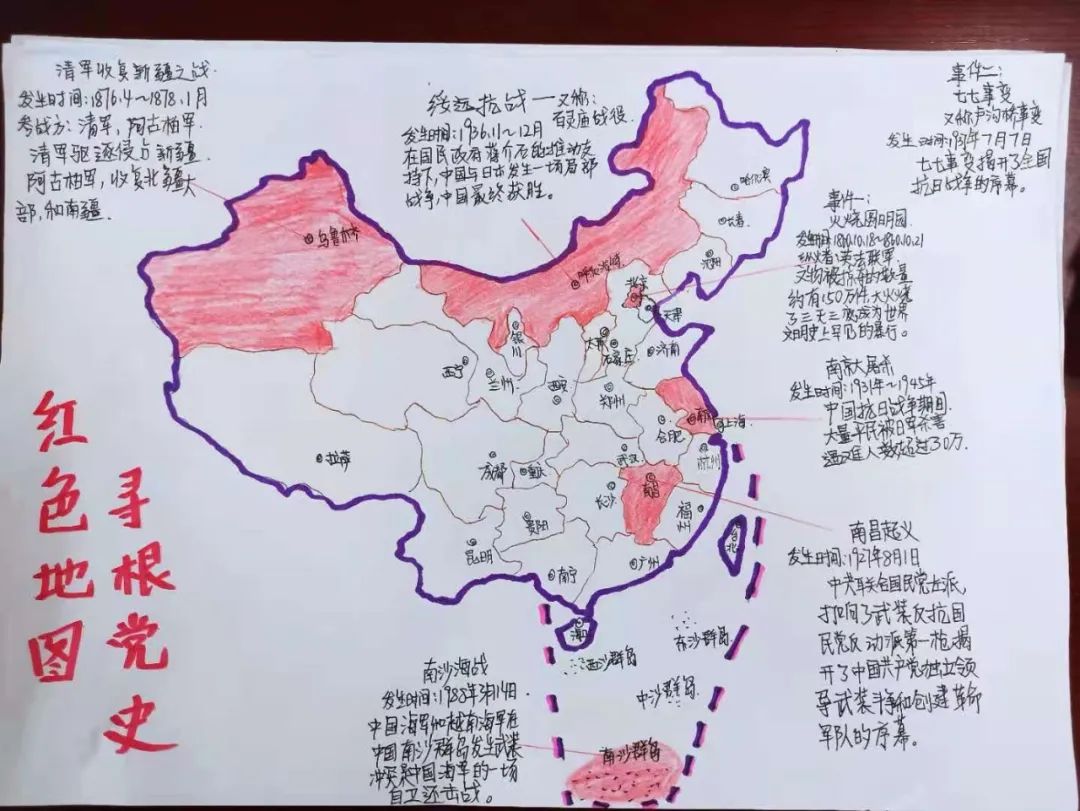 清军收复新疆之战.
发生时间:1876.4～1878.1月
参战方:清军,阿古柏军.
清军驱逐侵占新疆
阿古柏军,收复北疆大
部,和南疆.
绥远抗战一又称:
百灵庙战役.
发生时间:1936.11～12月
在国民政府蒋介石的推动支
持下,中国与日本发生一场局部
战争,中国最终获胜。
事件二:
七七事变
又称卢沟桥事变
发生时间:1937年7月7日
七七事变揭开了全国
抗日战争的序幕。
事件一:
火烧圆明园.
发生时间:1860.10.18～1860.10.21
纵火者:英法联军.
文物被掠夺的数量
约有150万件大火烧
了三天三夜成为世界
文明史上罕见的暴行。
南京大屠杀
发生时间:1931年～1945年
中国抗日战争期间.
大量平民被日军杀害
遇难人数超过30万.
南昌起义
发生时间:1927年8月1日
中共联合国民党左派,
打响了武装反抗国
民党反动派第一枪揭
开了中国共产党独立领
导武装斗争和创建革命
军队的序幕。
南沙海战
发生时间:1988年3月14日.
中国海军和越南海军在
中国南沙群岛发生武装
冲突是中国海军的一场
自卫还击战。
红色地图
寻根党史
哈尔滨
长春
沈阳
乌鲁木齐
呼和浩特
北京
天津
银川
太原
石家庄
济南
西宁
兰州
西安
郑州
南京
上海
合肥
拉萨
成都
重庆
武汉
杭州
长沙
南昌
贵阳
福州
台北
昆明
南宁
广州
海口
东沙群岛
西沙群岛
中沙群岛
南沙群岛